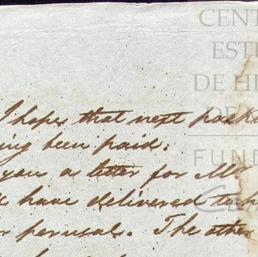 CENT
ESTE
DE HI
DE
FUND
I hope that next pack
ing been paid.
you a letter for Mr
have delivered to h
perusal. The other